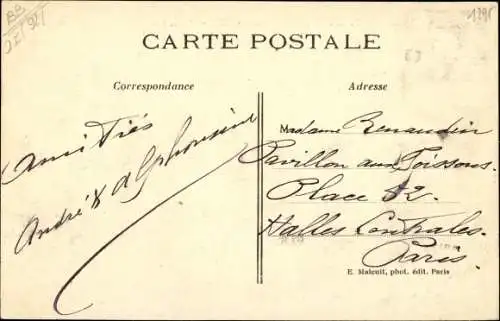 CARTE POSTALE
Correspondance
Adresse
Amitiés
André & Alphonsine
Madame Renaudin
Pavillon aux Poissons.
Place 52.
Halles Centrales.
Paris.
E. Malcuit, phot. édit. Paris